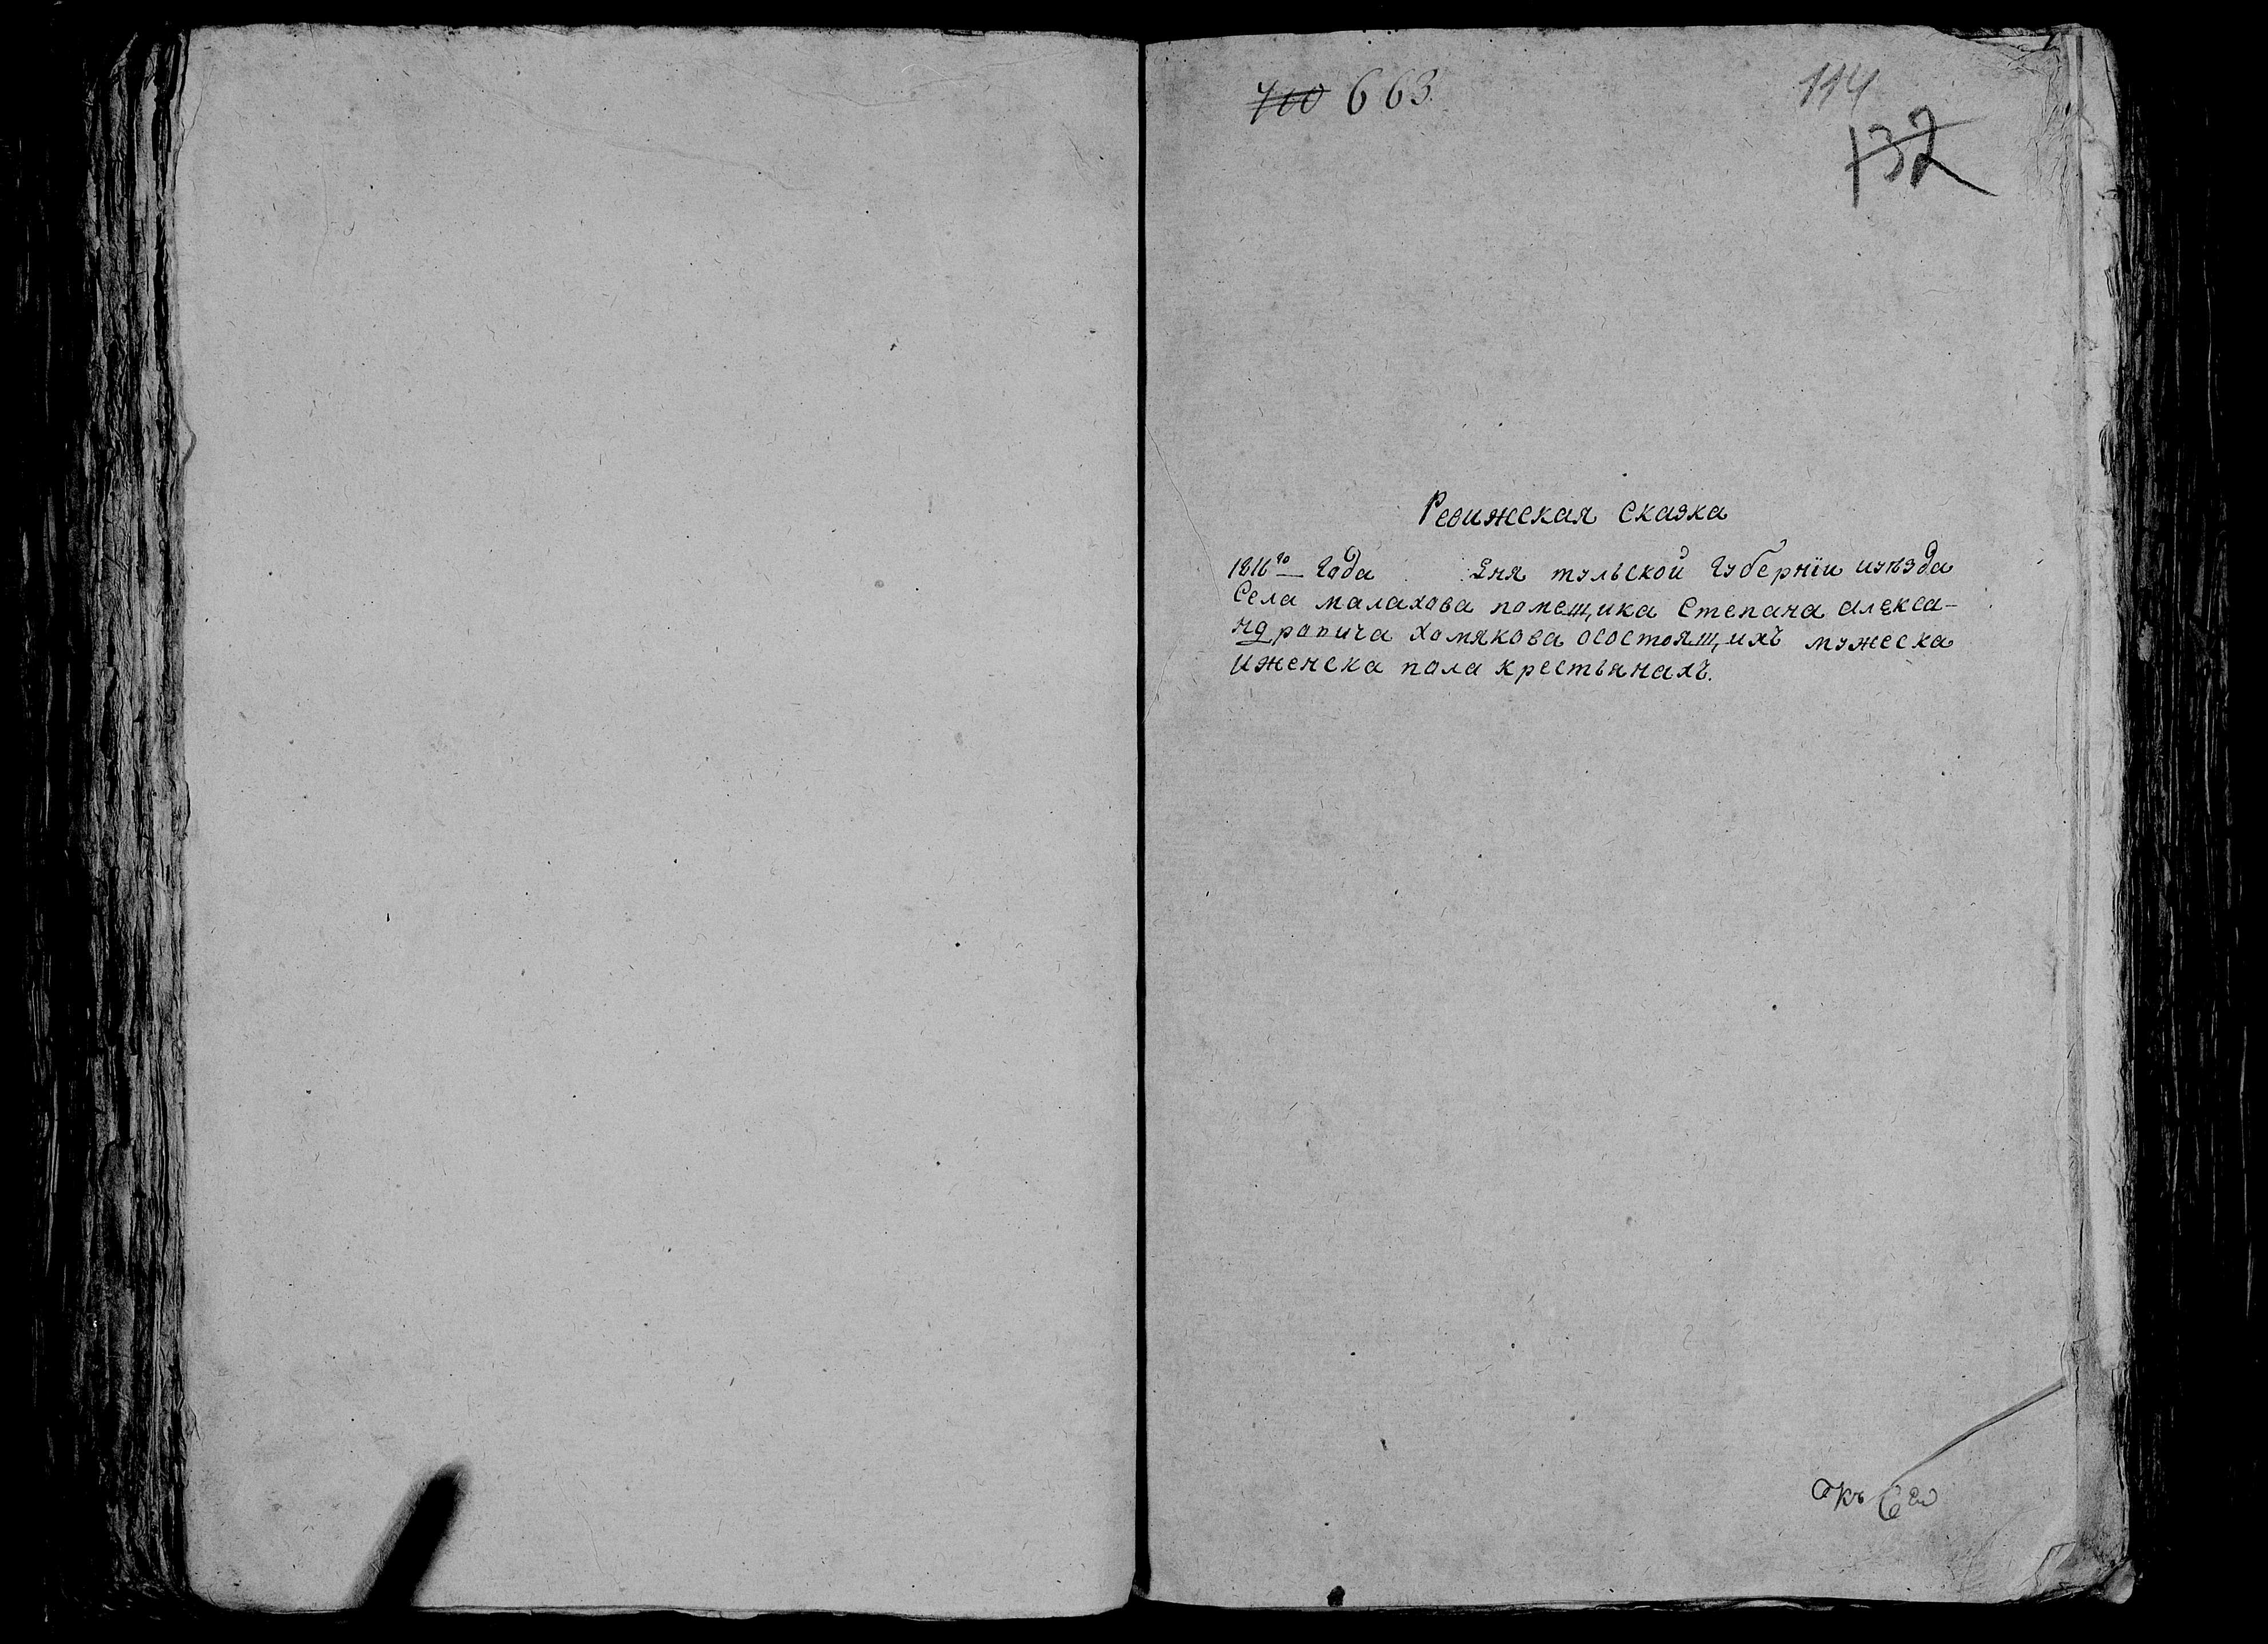 700 663.
114
132
Ревижская сказка
1816го Года дня тульской губернїи иуѣзда
Села малахова помещика Степана алекса-
ндровича хомякова осостоящихъ мужеска
иженска пола крестьянахъ.